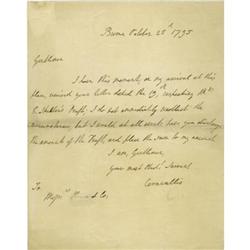 Berne October 28th 1795
Gentlemen
I have this moment, on my arrival at this
place, received your letter dated the 19th respecting Mr
Draft, I do not immediately recollect the
circumstance, but I would at all events have you discharge
the amount of the Draft, and place the same to my account
I am, Gentlemen
Your most Obedt Servant
Cornwallis
To
Messrs & Co,